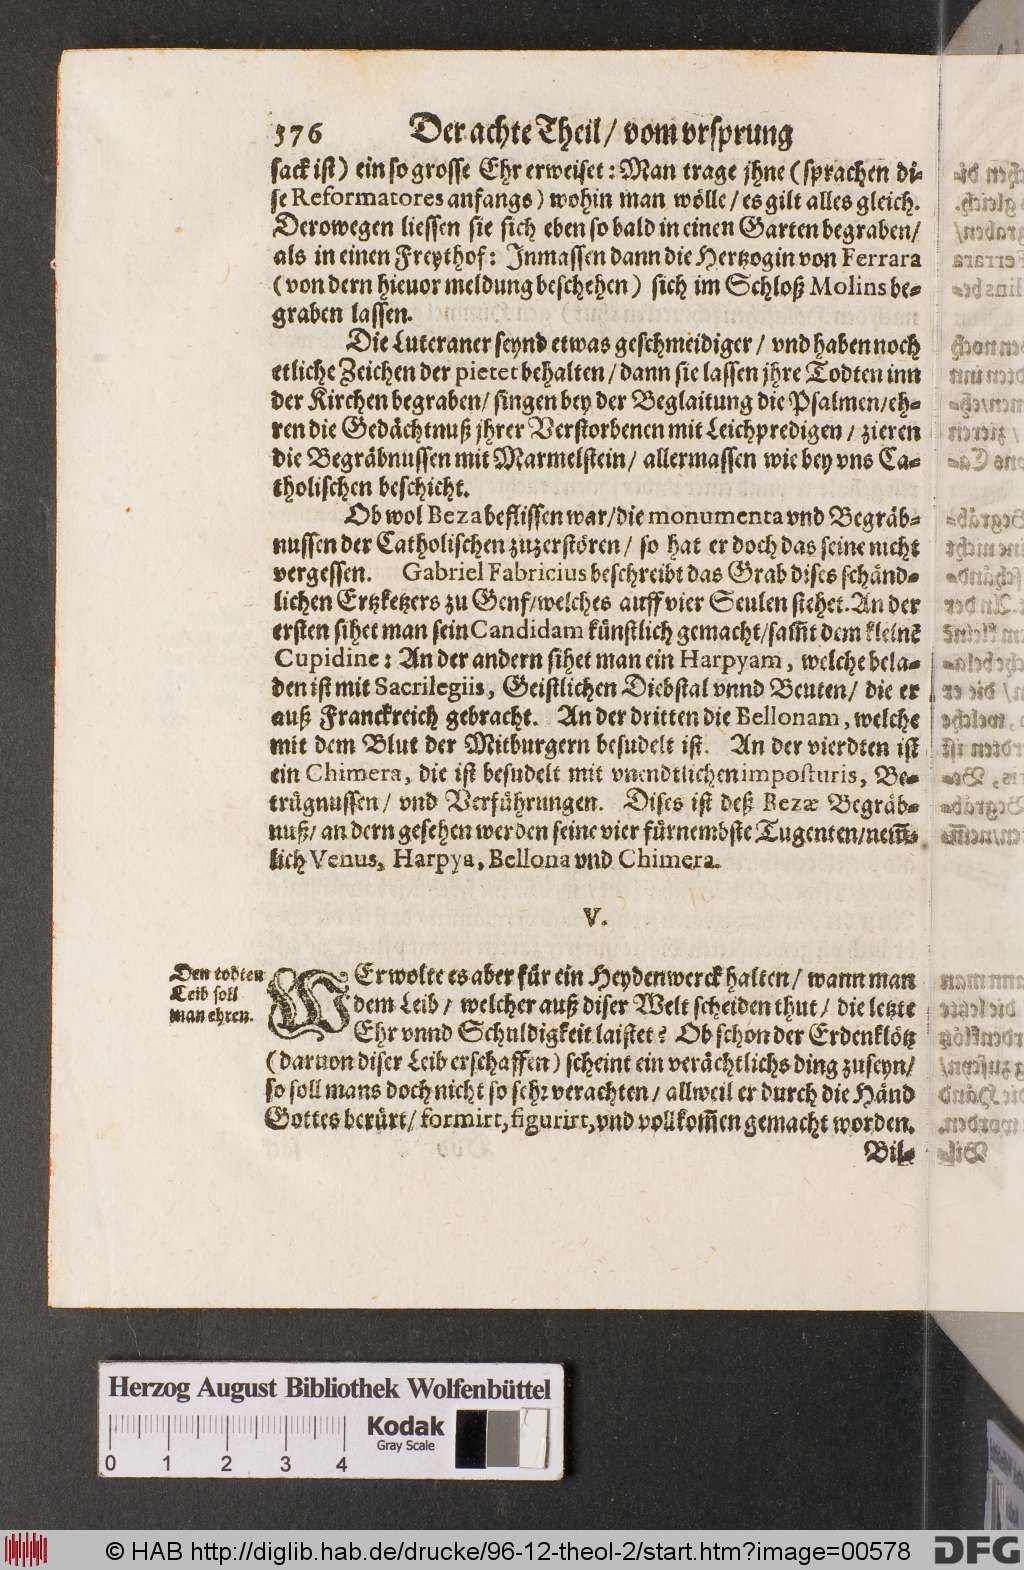 576 Der achte Theil / vom vrsprung
sack ist) ein so grosse Ehr erweiset: Man trage jhne (sprachen di-
se Reformatores anfangs) wohin man wölle / es gilt alles gleich.
Derowegen liessen sie sich eben so bald in einen Garten begraben/
als in einen Freythof: Inmassen dann die Hertzogin von Ferrara
(von dern hieuor meldung beschehen) sich im Schloß Molins be-
graben lassen.
Die Luteraner seynd etwas geschmeidiger / vnd haben noch
etliche Zeichen der pietet behalten / dann sie lassen jhre Todten inn
der Kirchen begraben / singen bey der Beglaitung die Psalmen / eh-
ren die Gedächtnuß jhrer Verstorbenen mit Leichpredigen / zieren
die Begräbnussen mit Marmelstein / allermassen wie bey vns Ca-
tholischen beschicht.
Ob wol Beza beflissen war / die monumenta vnd Begräb-
nussen der Catholischen zuzerstören / so hat er doch das seine nicht
vergessen. Gabriel Fabricius beschreibt das Grab dises schänd-
lichen Ertzketzers zu Genf / welches auff vier Seulen stehet. An der
ersten sihet man sein Candidam künstlich gemacht / sam̃t dem kleinẽ
Cupidine: An der andern sihet man ein Harpyam, welche bela-
den ist mit Sacrilegiis, Geistlichen Diebstal vnnd Beuten / die er
auß Franckreich gebracht. An der dritten die Bellonam, welche
mit dem Blut der Mitburgern besudelt ist. An der vierdten ist
ein Chimera, die ist besudelt mit vnendtlichen imposturis, Be-
trügnussen / vnd Verführungen. Dises ist deß Bezæ Begräb-
nuß / an dern gesehen werden seine vier fürnembste Tugenten / nem̃-
lich Venus, Harpya, Bellona vnd Chimera.
V.
Den todten
Leib soll
man ehren.
WEr wolte es aber für ein Heydenwerck halten / wann man
dem Leib / welcher auß diser Welt scheiden thut / die letzte
Ehr vnnd Schuldigkeit laistet? Ob schon der Erdenklötz
(daruon diser Leib erschaffen) scheint ein verächtlichs ding zuseyn /
so soll mans doch nicht so sehr verachten / allweil er durch die Händ
Gottes berürt / formirt, figurirt, vnd vollkom̃en gemacht worden.
Bil-
Herzog August Bibliothek Wolfenbüttel
Kodak
Gray Scale
0 1 2 3 4
© HAB http://diglib.hab.de/drucke/96-12-theol-2/start.htm?image=00578
DFG